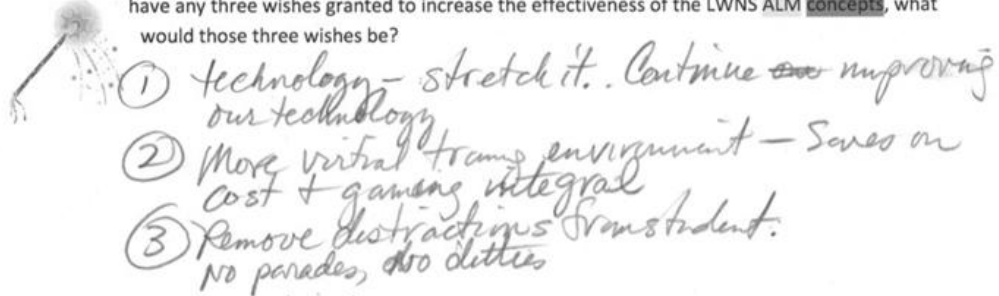 have any three wishes granted to increase the effectiveness of the LWNS ALM concepts, what
would those three wishes be?
① technology - stretch it.. Continue improving
our technology
② More virtual traing environment - Saves on
cost + gaming integral
③ Remove distractions from student.
No parades, No ditties